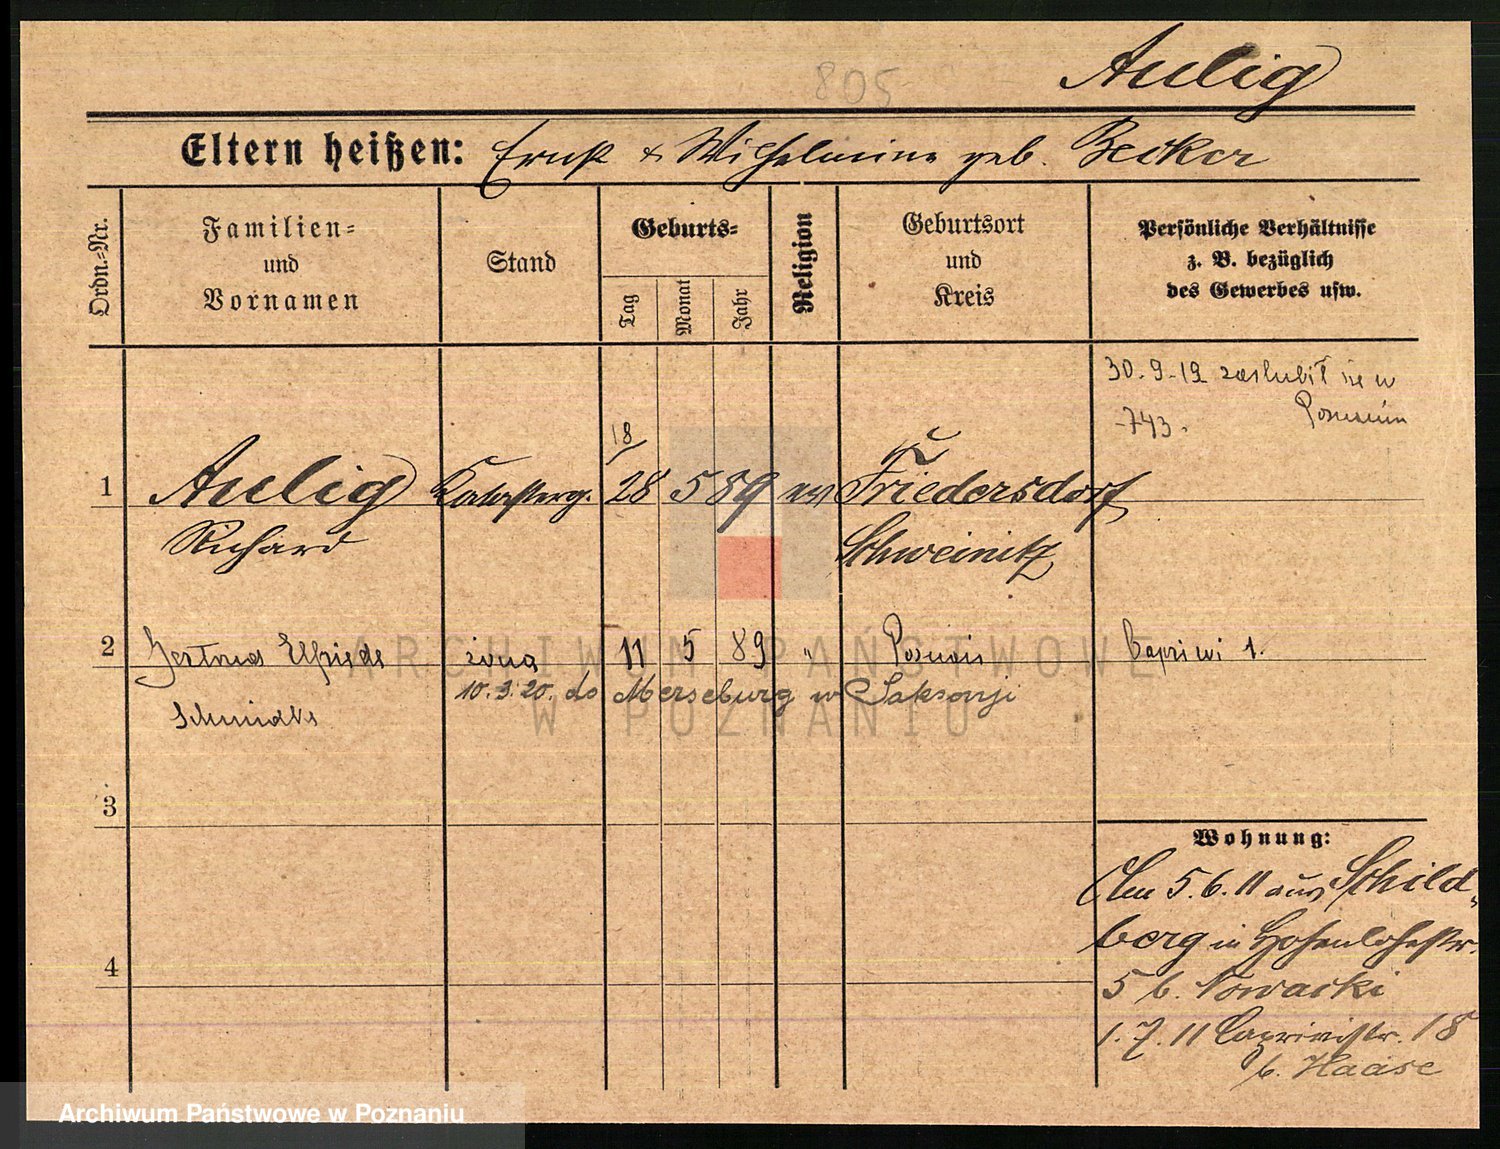 805
Aulig
Eltern heißen: Ernst & Wilhelmine geb. Becker
Ordn.-Nr.
Familien-
und
Vornamen
Stand
Geburts-
Tag
Monat
Jahr
Religion
Geburtsort
und
Kreis
Persönliche Verhältnisse
z. B. bezüglich
des Gewerbes usw.
30.-9.-19 zaślubił się w
-743. Poznaniu
18/
1 Aulig 28 5 89 ev Friedersdorf
Richard Schweinitz
2 Gertrud Elfriede żona 11 5 89 " Poznań Capriwi 1.
10.3.20. do Merseburg w Saksonji
Schmidtke
3
4
Wohnung:
Am 5.6.11 aus Schild-
berg in Hohenlohestr.
5 b. Nowacki
1.7.11 Caprivistr. 18
b. Haase
ARCHIWUM PAŃSTWOWE
W POZNANIU
Archiwum Państwowe w Poznaniu